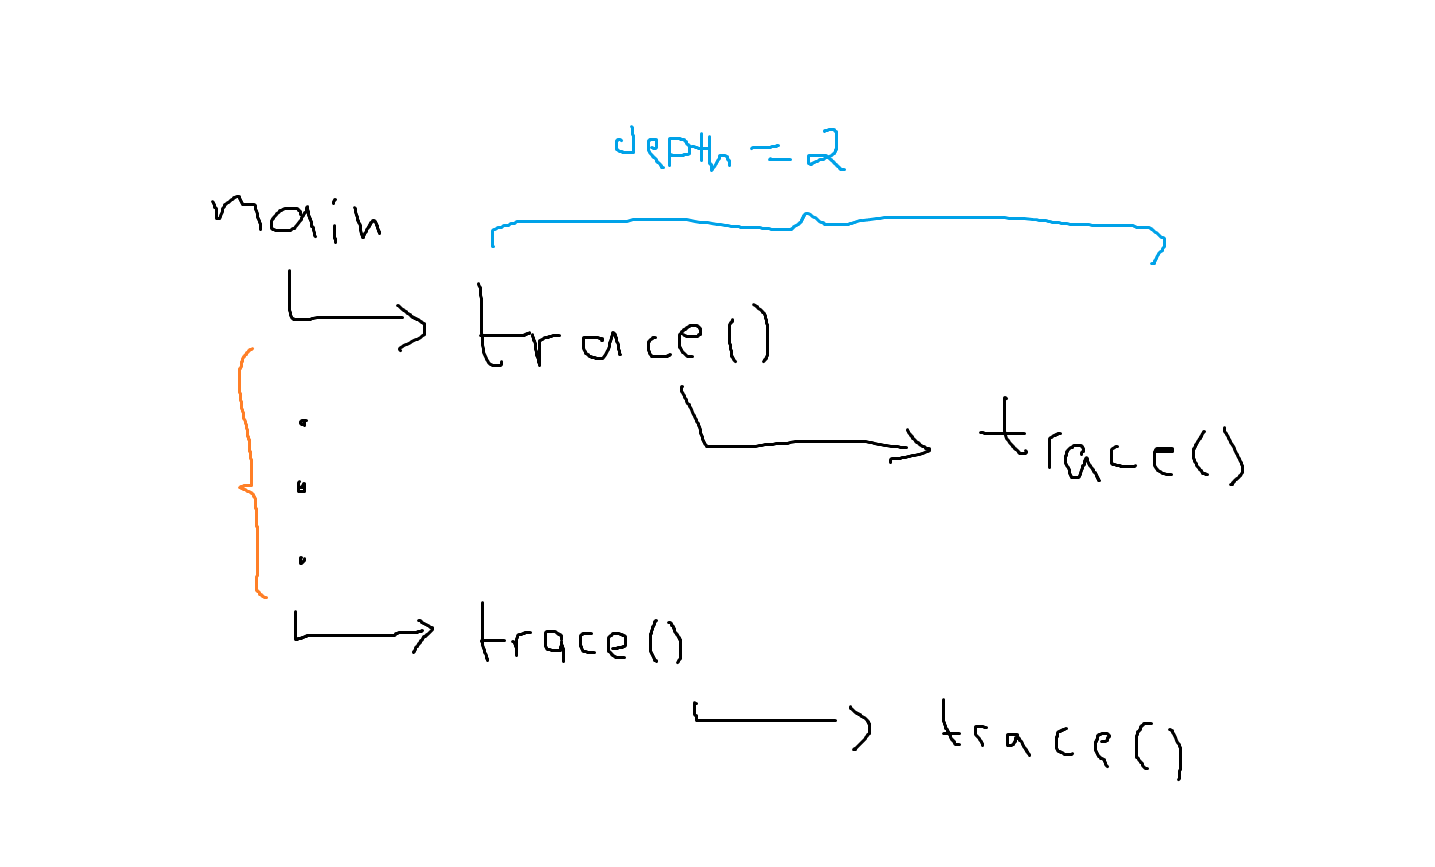 depth = 2
main
trace()
trace()
trace()
trace()